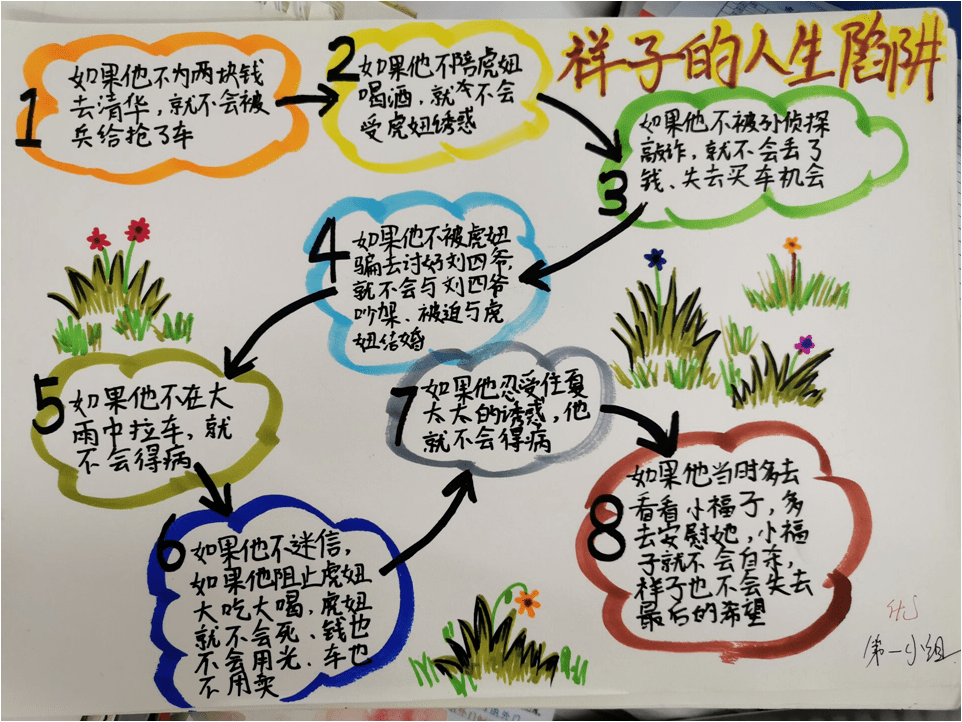 祥子的人生陷阱
1
如果他不为两块钱
去清华，就不会被
兵给抢了车
2
如果他不陪虎妞
喝酒，就不会
受虎妞诱惑
3
如果他不被孙侦探
敲诈，就不会丢了
钱、失去买车机会
4
如果他不被虎妞
骗去讨好刘四爷，
就不会与刘四爷
吵架、被迫与虎
妞结婚
5
如果他不在大
雨中拉车，就
不会得病
6
如果他不迷信，
如果他阻止虎妞
大吃大喝，虎妞
就不会死、钱也
不会用光、车也
不用卖
7
如果他忍受住夏
太太的诱惑，他
就不会得病
8
如果他当时多去
看看小福子，多
去安慰她，小福
子就不会自杀，
祥子也不会失去
最后的希望
优
第一小组